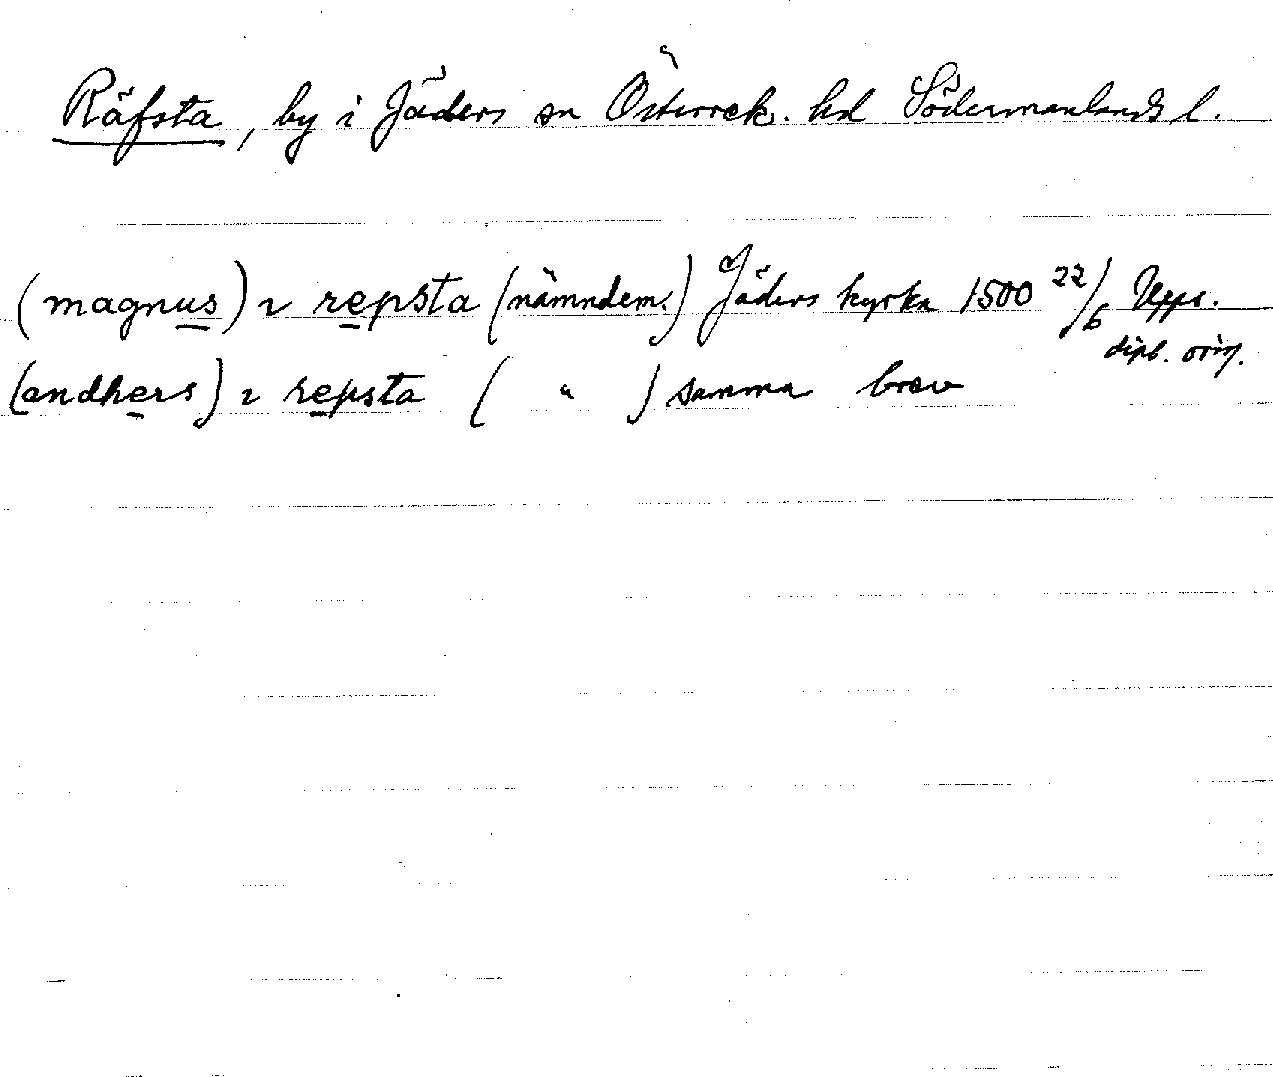 Räfsta, by i Jäders sn Österrek. hd Södermanlands l.
(magnus) i repsta (nämndem.) Jäders kyrka 1500 22/6 Upps.
dipl. orig.
(andhers) i repsta ( " ) samma brev